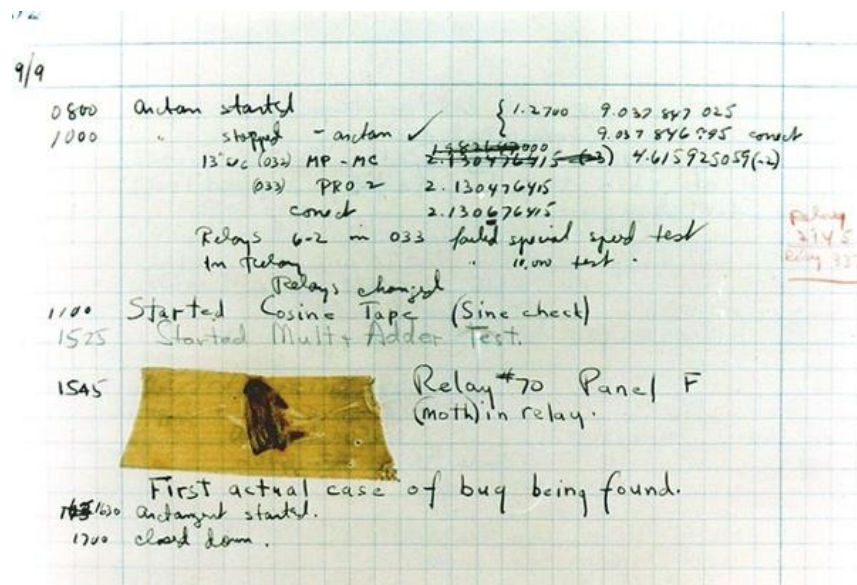 9/9
0800 arctan started { 1.2700 9.037 847 025
1000 " stopped - arctan ✓ 9.037 846 995 correct
13"uc (032) MP - MC 2.130476415 (-3) 4.615925059(-2)
(033) PRO 2 2.130476415
correct 2.130676415
Relays 6-2 in 033 failed special speed test
In Relay " 11,000 test .
Relay
2145
Relay 337
Relays changed
1100 Started Cosine Tape (Sine check)
1525 Started Mult + Adder Test.
1545 Relay #70 Panel F
(moth) in relay.
First actual case of bug being found.
1630 arctangent started.
1700 closed down .